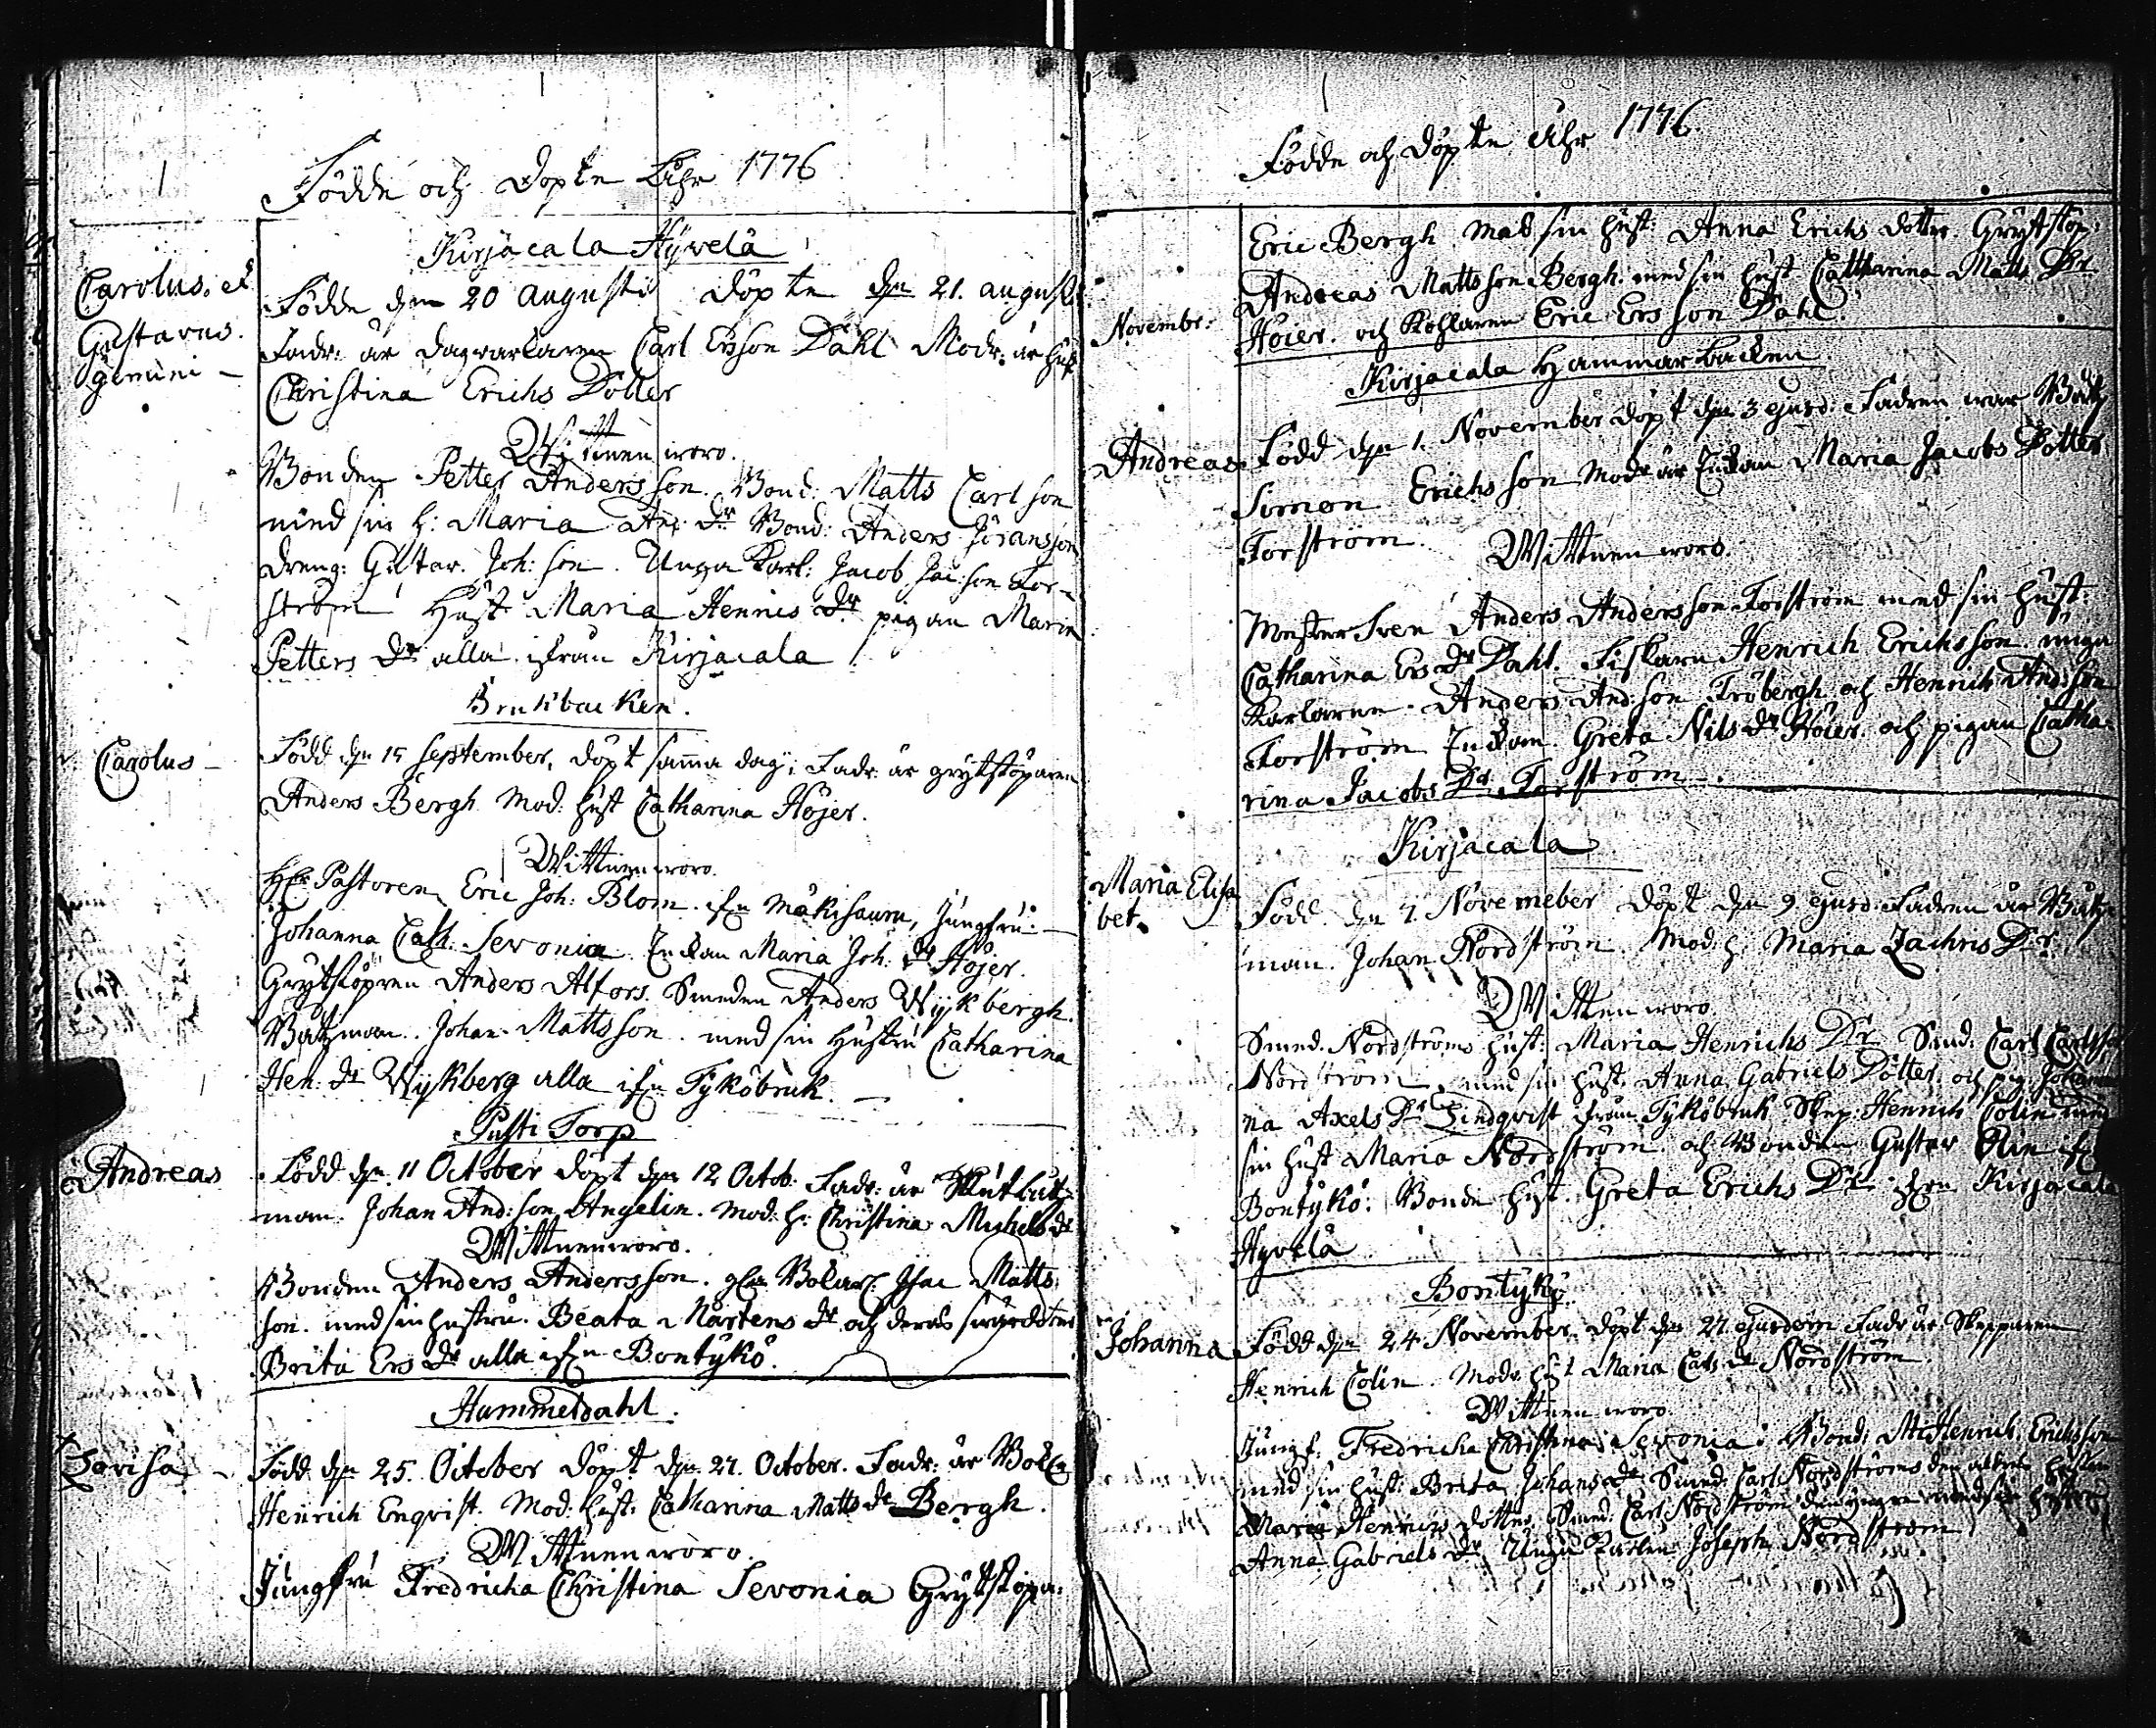 Födde och Döpte Åhr 1776
Kirjacala Hyvelä
Carolus. et
Gustavus.
gemini -
Födde den 20 Augusti Döpte den 21. Augusti
Fadr: är dagvarkaren Carl Ersson Dahl Modr: är hust
Christina Erichs Dotter
Wittnen woro.
Bonden Petter Andersson. Bond: Matts Carlson
med sin h: Maria And: dr Bond: Anders Jöransson
dreng: Gustav. Joh: son. Unga Karl: Jacob Jac:son For-
ström Hust Maria Hennis dr pigan Maria
Petters dr alla ifrån Kirjacala
Brukbacken.
Carolus -
Född den 15 September, döpt sama dag; Fadr: är grytstöparen
Anders Bergh. Mod: hust Catharina Höjer.
Wittnen woro.
Hr Pastoren Eric Joh: Blom. ifrn Mäkisaura, Jungfru.
Johanna Cath. Sevonia. Enckan Maria Joh: dr Höjer.
Grytstöpren Anders Alfors. Smeden Anders Wykbergh.
Båtzman. Johan Mattsson. med sin Hustru Catharina
Hen: dr Wykberg alla ifrn Tyköbruk.
Pusti Torp
Andreas
Född den 11 October döpt den 12 Octob: Fadr: är
man. Johan And:son Angelin. Mod: h: Christina Michels dr
Wittnen woro.
Bonden Anders Andersson. Isac Matts
son. med sin hustru. Beata Mårtens dr och deras
Brita Ers dr alla ifrn Bontykö.
Hummeldahl.
Lovisa
Född den 25. October döpt den 27. October. Fadr: är
Henrich Enqvist. Mod: hust: Catharina Matts dr Bergh.
Wittnen woro.
Jungfru Fredricha Christina Sevonia Grytstöpa.
Födde och Döpte Åhr 1776.
Eric Bergh med sin hust: Anna Erichs dotter. Grytstöp:
Andreas Mattsson Bergh. med sin hust Cattharina Matts Dr
Novembr:
Höier. och Kohlaren Eric Ersson Dahl.
Kirjacala Hammarbacken
Andreas
Född den 1. November döpt den 3 ejusd: Fadren war
Simon Erichsson Modr är Enckan Maria Jacobs Dotter
Forström.
Wittnen woro.
Mester Sven Anders Andersson Forström med sin hust:
Catharina Ers dr Dahl. Fiskaren Henrich Erichsson. unga
Karlarne. Anders And:son Fröbergh och Henrich And:son
Forström Enckan. Greta Nils dr Höier. och pigan Catha-
rina Jacobs Dr Forström.
Kirjacala
Maria Elisa
bet.
Född den 7. Novemeber döpt den 9 ejusd: Fadren är Båtz-
man. Johan Nordström. Mod: h: Maria Zachris Dr.
Wittnen woro.
Smed. Nordströms hust: Maria Henrichs Dr Smd: Carl Carlsson
Nordström med sin hust. Anna Gabriels Dotter. och pig: Johan
na Axels Dr Lindqvist från Tyköbruk Skep: Henrich Colin med
sin hust Maria Nordström. och Bonden Gustav Olin ifrn
Bontykö. Bonde hust. Greta Erichs Dr från Kirjacala
Hyvelä
Bontykö.
Johanna
Född den 24 November. döpt den 27 ejusdem Fadr är Skepparen
Henrich Colin. Modr hust Maria Carls dr Nordström.
Wittnen woro
Jungf: Fredricha Christina Sevonia. Bond: Henrich. Erichsson
med sin hust: Brita Johans dr Smed: Carl Nordströms den äldre hustru
Maria Henrics dotter. Smed: Carl Nordström den yngre med sin hustru
Anna Gabriels dr Unga Karlen Joseph Nordström